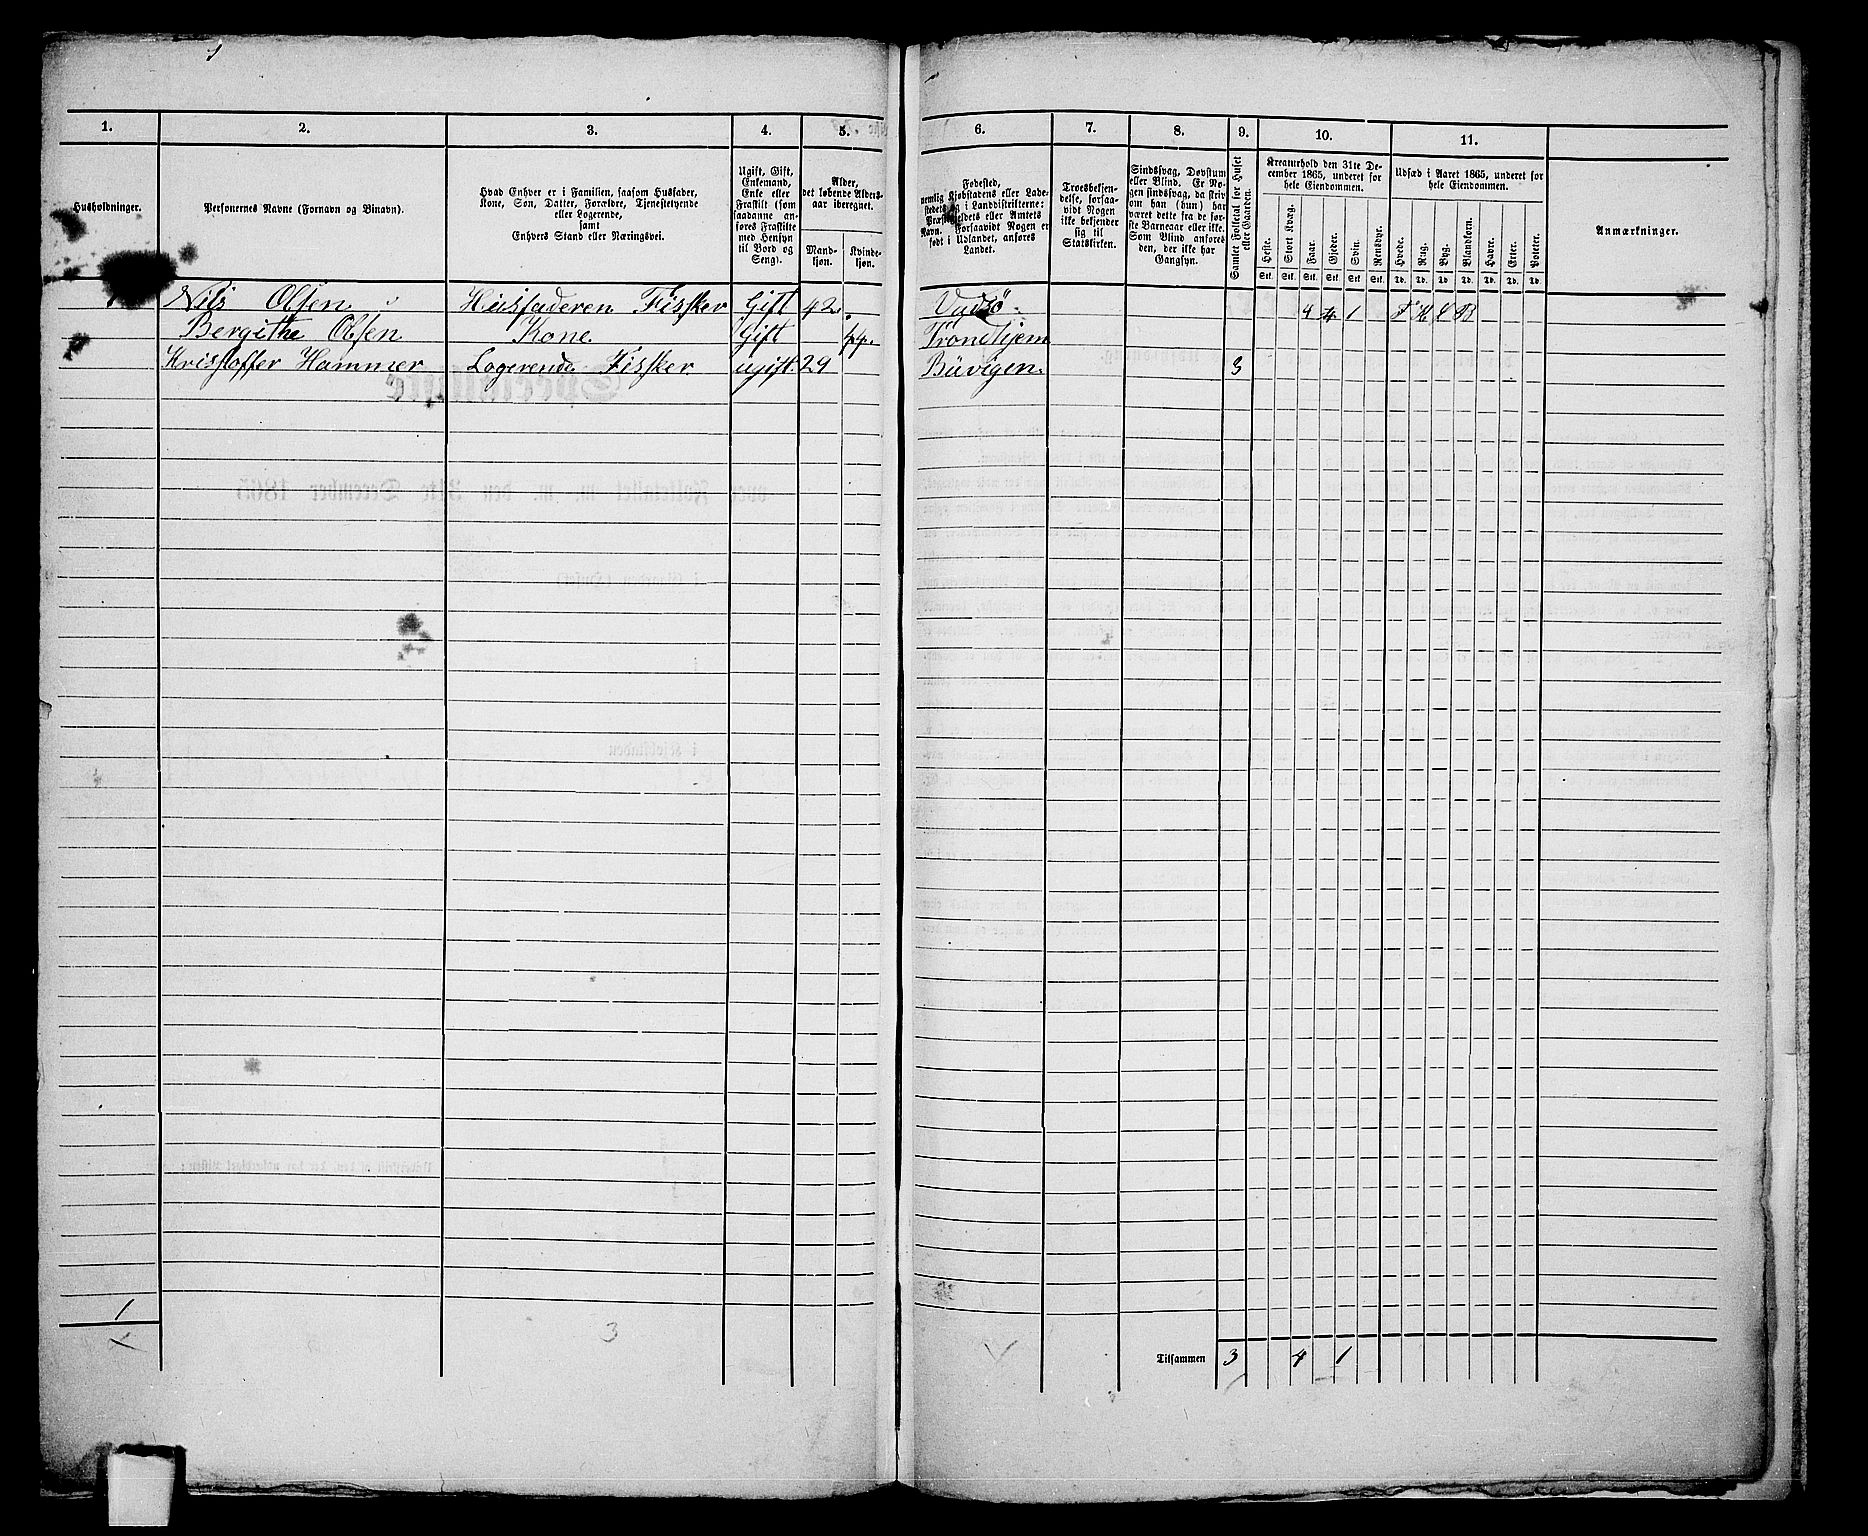 1. 2. 3. 4. 5. 6. 7. 8. 9. 10. 11.
Husholdninger.
Personernes Navne (Fornavn og Binavn).
Hvad Enhver er i Familien, saasom Husfader,
Kone, Søn, Datter, Forældre, Tjenestetyende
eller Logerende,
samt
Enhvers Stand eller Næringsvei.
Ugift, Gift,
Enkemand,
Enke eller
Fraskilt (som
saadanne an-
føres Fraskilte
med Hensyn
til Bord og
Seng).
Alder,
det løbende Alders-
aar iberegnet.
Mand-
kjøn.
Kvinde-
kjøn.
Fødested,
nemlig Kjøbstadens eller Lade-
stedets og i Landdistrikterne:
Præstegjeldets eller Amtets
Navn. Forsaavidt Nogen er
født i Udlandet, anføres
Landet.
Troesbekjen-
delse, forsaa-
vidt Nogen
ikke bekjender
sig til
Statskirken.
Sindssvag, Døvstum
eller Blind. Er No-
gen sindssvag, da skriv
om han (hun) har
været dette fra de før-
ste Barneaar eller ikke.
Som Blind anføres
den, der ikke har
Gangsyn.
Samlet Folketal for Huset
eller Gaarden.
Kreaturhold den 31te De-
cember 1865, underet for
hele Eiendommen.
Heste. Stort Kvæg. Faar. Gjeder. Svin. Rensdyr.
Stk. Stk. Stk. Stk. Stk. Stk.
Udsæd i Aaret 1865, underet for
hele Eiendommen.
Hvede. Rug. Byg. Blandkorn. Havre. Erter. Poteter.
Td. Td. Td. Td. Td. Td. Td.
Anmærkninger.
Nils Olsen Husfaderen Fissker Gift 42. Vadsö 4 4 1
Bergithe Olsen Kone. Gift 44. Trondhjem
Kristoffer Hammer Logerende Fissker. ugift. 29 Büvigen. 3
1
3
Tilsammen 3 4 1